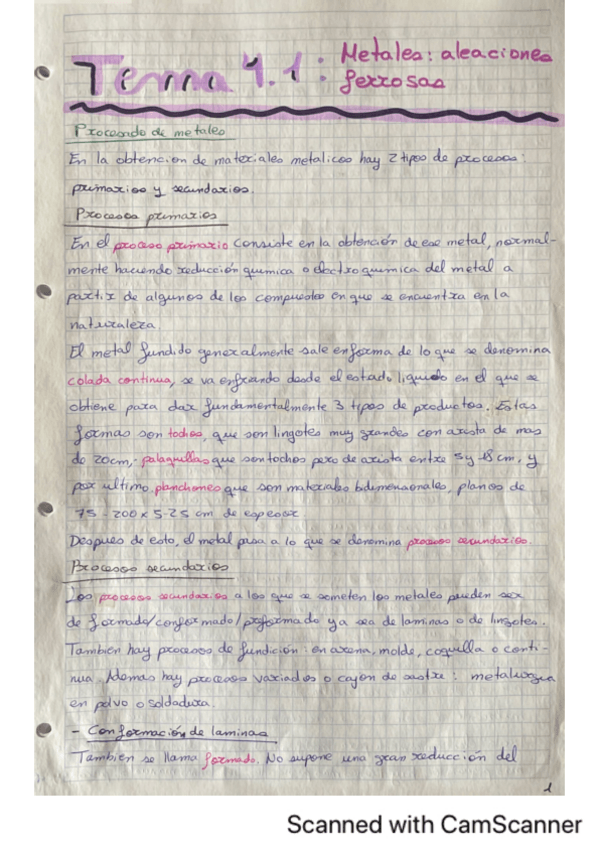 Tema 4.1: Metales: aleaciones
ferrosas
Procesado de metales
En la obtencion de materiales metalicos hay 2 tipos de procesos:
primarios y secundarios.
Procesos primarios
En el proceso primario consiste en la obtención de ese metal, normal-
mente haciendo reducción quimica o electroquimica del metal a
partir de algunos de los compuestos en que se encuentra en la
naturaleza.
El metal fundido generalmente sale en forma de lo que se denomina
colada continua, se va enfriando desde el estado liquido en el que se
obtiene para dar fundamentalmente 3 tipos de productos. Estas
formas son tochos, que son lingotes muy grandes con arista de mas
de 20cm, palaquillas que son tochos pero de arista entre 5 y 18 cm, y
por ultimo planchones que son materiales bidimensionales, planos de
75 - 200 x 5-25 cm de espesor
Despues de esto, el metal pasa a lo que se denomina procesos secundarios.
Procesos secundarios
Los procesos secundarios a los que se someten los metales pueden ser
de formado/conformado/preformado ya sea de laminas o de lingotes.
Tambien hay procesos de fundición: en arena, molde, coquilla o conti-
nua. Ademas hay procesos variados o cajon de sastre: metalurgia
en polvo o soldadura.
- Conformación de laminas
Tambien se llama formado. No supone una gran reducción del
1
Scanned with CamScanner